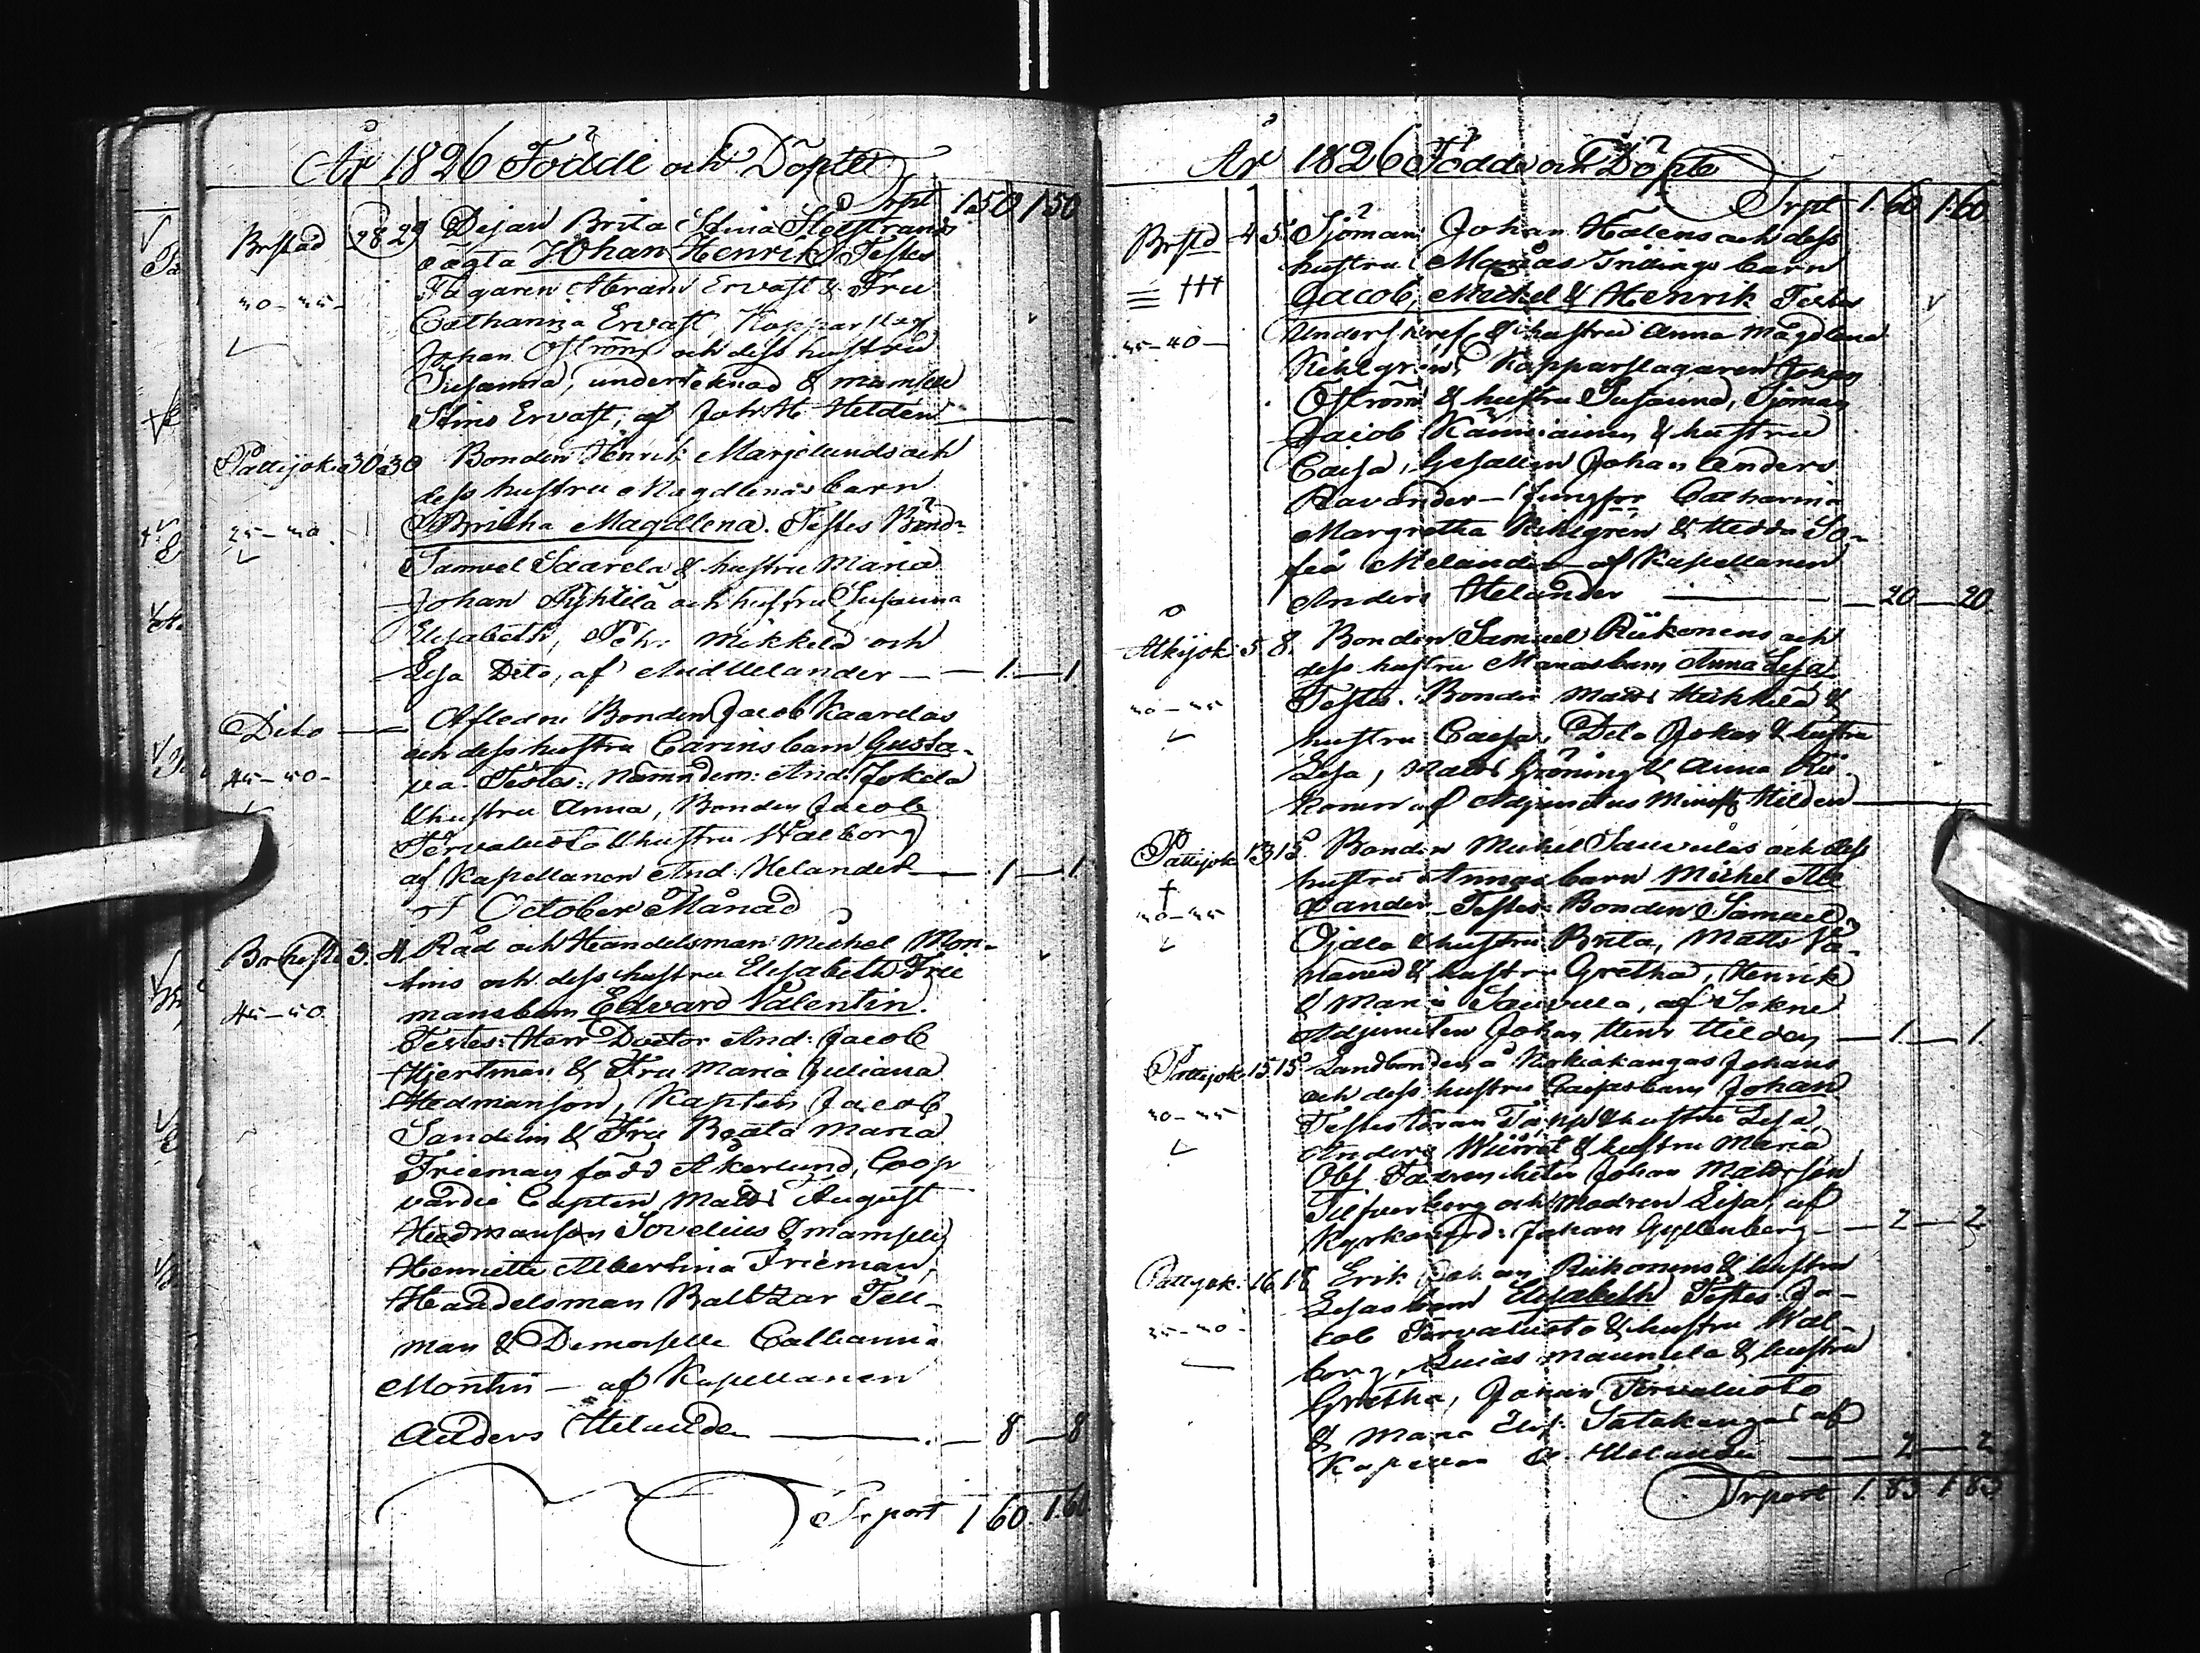 År 1826 Födde och Döpte
Trpt 1.50 1.50
Brstad 28 29 Pejan Brita Stina
oägta Johan Henrik Testes
40-45- Färgaren Abram Ervast & Fru
Catharina Ervast, Kopparslag
Johan Öström och dess hustru
Susanna, undertecknad & mamsell
Stina Ervast, af Joh. H. Heldén
Pattijoki 30 30 Bonden Henrik Marjelunds och
dess hustru Magdlenas barn
Britha Magdlena. Testes Bond:
25-40. Samuel Saarela & hustru Maria
Johan Pyhtilä och hustru Susanna
Elisabeth, Pehr Mikkela och
Lisa Dito, af And Helander — 1 — 1
Dito — Afledne Bonden Jacob Kaarelas
och dess hustru Carins barn Gusta-
45-50- va. Testes: Nämndem: And: Jokela
& hustru Anna, Bonden Jacob
Tervaluoto & hustru Walborg
af Kapellanen And. Helander — 1 — 1
I October Månad
3. 4. Råd och Handelsman Michel Mon-
tins och dess hustru Elisabeth Frie
45-50 mans barn Edvard Valentin.
Testes: Herr Doctor And: Jacob
Hjertman & Fru Maria Juliana
Hedmanson, Kapten Jacob
Sandelin & Fru Beata Maria
Frieman född Åkerlund, Coop
vardie Capten Matts August
Hedmanson Sovelius & mamsell
Henriette Albertina Frieman,
Handelsman Baltzar Fell-
man & Demoiselle Catharina
Montin — af Kapellanen
Anders Helander — 8 — 8
Trport 1 60. 1.60
År 1826 Födde och Döpte
Trpt 1.60 1.60
Brstd 4 5. Sjöman Johan Hälens och dess
hustru Marias barn
+++ Jacob, Michel & Henrik Testes
35-40- Underskref & hustru Anna Magdlena
Kihlgren, Kopparslagaren Johan
Öström & hustru Susanna, Sjöman
Jacob & hustru
Caisa, Gesällen Johan Anders
Ravander — Jungfrr Catharina
Margretha Kihlgren & Hedda So-
fia Melander — af Kapellanen
Anders Helander — 20 — 20
5 8. Bonden Samuel Riikonens och
dess hustru Marias barn Anna Lisa
40-45 Testes. Bonden Matts Mikkela &
hustru Caisa, Dito Johan & hustru
Lisa, Matts Gröning & Anna Rii-
konen af Adjunctus Minist. Heldén
Pattijok. 13 15. Bonden Michel Sauvulas och dess
hustru Annas barn Michel Ale
40-45 xander — Testes: Bonden Samuel
Ojala & hustru Brita, Matts Vä-
nänen & hustru Gretha, Henrik
& Maria Sauvula, af Sokne
Adjuncten Johan Henr Heldén — 1 — 1.
Pattijok. 15 15 Landbonden å Kurkiokangas Johans
och dess hustru Caisas barn Johan
40-45 Testes & hustru Lisa,
Anders & hustru Maria
Obs. Johan Mattsson
Silfverberg och Modren Lisa, af
Kyrkoherd: Johan Gyllenberg — 2 — 2
Pattijok: 16 18 Erik Johan Riikonens & hustru
Lisas barn Elisabeth Testes: Ja-
25-30- cob Tervaluoto & hustru Wal-
borg, Lucas Maunula & hustru
Gretha, Johan Tervaluoto
& Maria Elis. Satakangas af
Kapellan A. Helander — 2 — 2
Trport 1.83 1.83